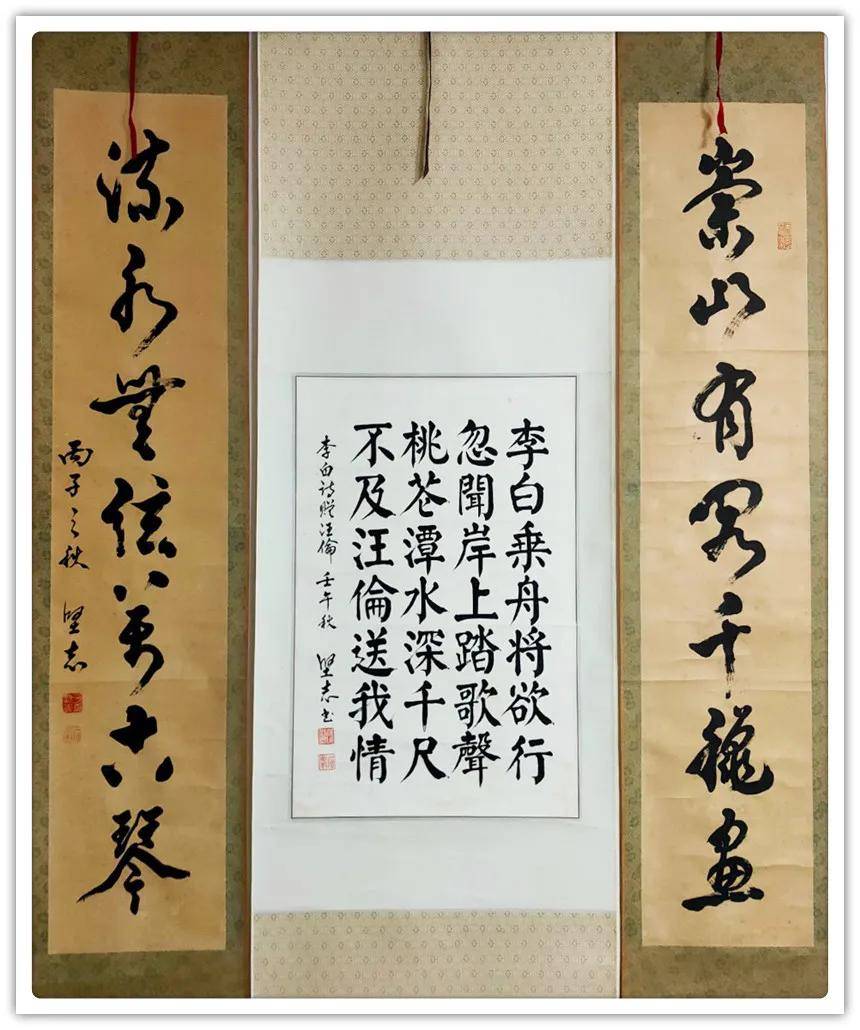 崇山有千龝畫
李白乘舟将欲行
忽聞岸上踏歌聲
桃花潭水深千尺
不及汪倫送我情
李白诗赠汪倫 壬午秋 坚志书
流水無弦萬古琴
丙子之秋 坚志